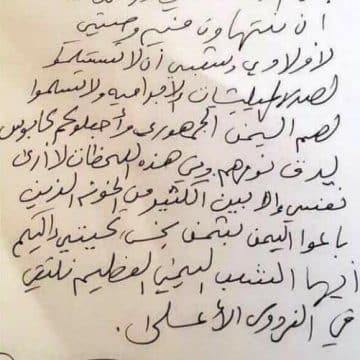 ان ننتهاون فيه وصيتي
لأولادي وشعبي أن لا تستسلموا
لهذه المليشيات الاجرامية ولا تسلموا
لهم اليمن الجمهوري واجعلوكم كابوس
يؤرق نومهم وفي هذه اللحظات لا أرى
نفسي إلا بين الكثير من الخونة الذين
باعوا اليمن بثمن بخس تحيتي إليكم
أيها الشعب اليمني العظيم نلتقي
في الفردوس الأعلى.